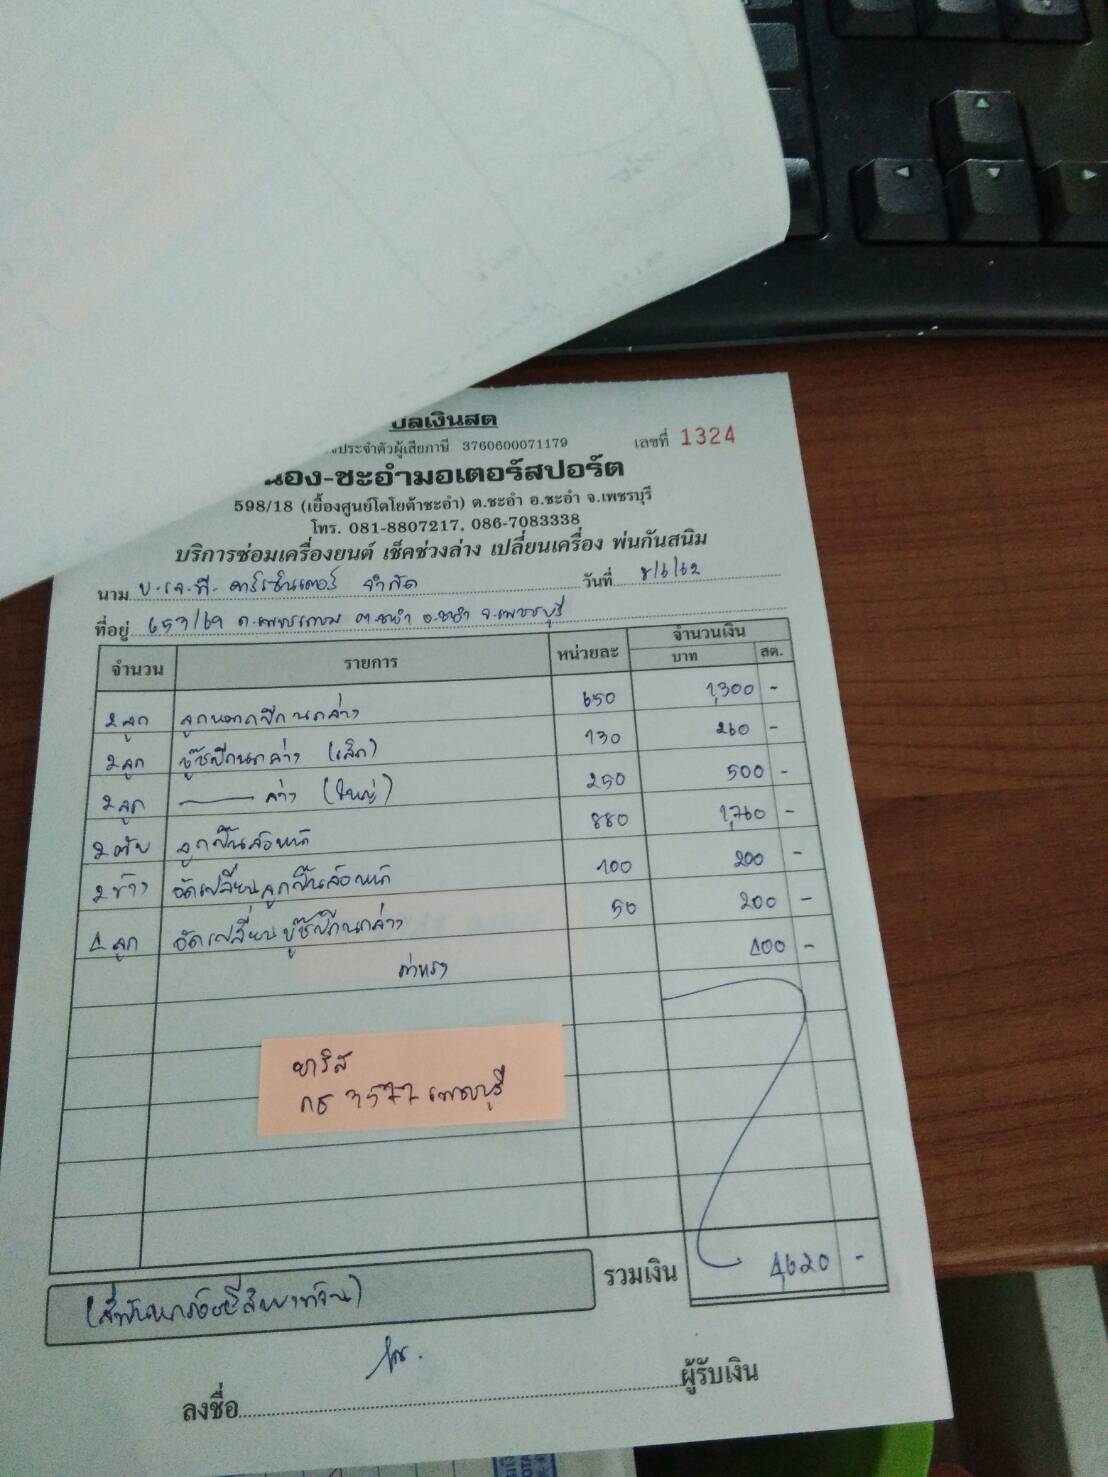 บิลเงินสด
ประจำตัวผู้เสียภาษี 3760600071179 เลขที่ 1324
น้อง-ชะอำมอเตอร์สปอร์ต
598/18 (เยื้องศูนย์โตโยต้าชะอำ) ต.ชะอำ อ.ชะอำ จ.เพชรบุรี
โทร. 081-8807217, 086-7083338
บริการซ่อมเครื่องยนต์ เช็คช่วงล่าง เปลี่ยนเครื่อง พ่นกันสนิม
นาม บ.เจ.ที. คาร์เซ็นเตอร์ จำกัด วันที่ 8/6/62
ที่อยู่ 657/69 ถ.เพชรเกษม ต.ชะอำ อ.ชะอำ จ.เพชรบุรี
จำนวน รายการ หน่วยละ จำนวนเงิน
บาท สต.
2 ลูก ลูกหมากปีกนกล่าง 650 1,300 -
2 ลูก บู๊ชปีกนกล่าง (เล็ก) 130 260 -
2 ลูก ล่าง (ใหญ่) 250 500 -
2 ตับ ลูกปืนล้อหน้า 880 1,760 -
2 ข้าง อัดเปลี่ยนลูกปืนล้อหน้า 100 200 -
4 ลูก อัดเปลี่ยนบู๊ชปีกนกล่าง 50 200 -
ค่าแรง 400 -
ยาริส
กธ 3577 เพชรบุรี
รวมเงิน 4,620 -
(สี่พันหกร้อยยี่สิบบาทถ้วน)
ลงชื่อ ผู้รับเงิน